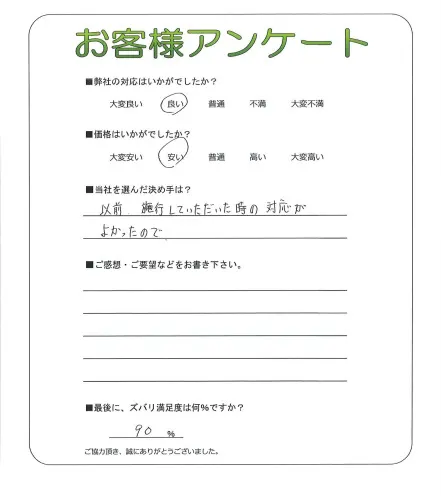 お客様アンケート
■弊社の対応はいかがでしたか?
大変良い 良い 普通 不満 大変不満
■価格はいかがでしたか?
大変安い 安い 普通 高い 大変高い
■当社を選んだ決め手は?
以前、施行していただいた時の対応が
よかったので
■ご感想・ご要望などをお書き下さい。
■最後に、ズバリ満足度は何%ですか?
90 %
ご協力頂き、誠にありがとうございました。